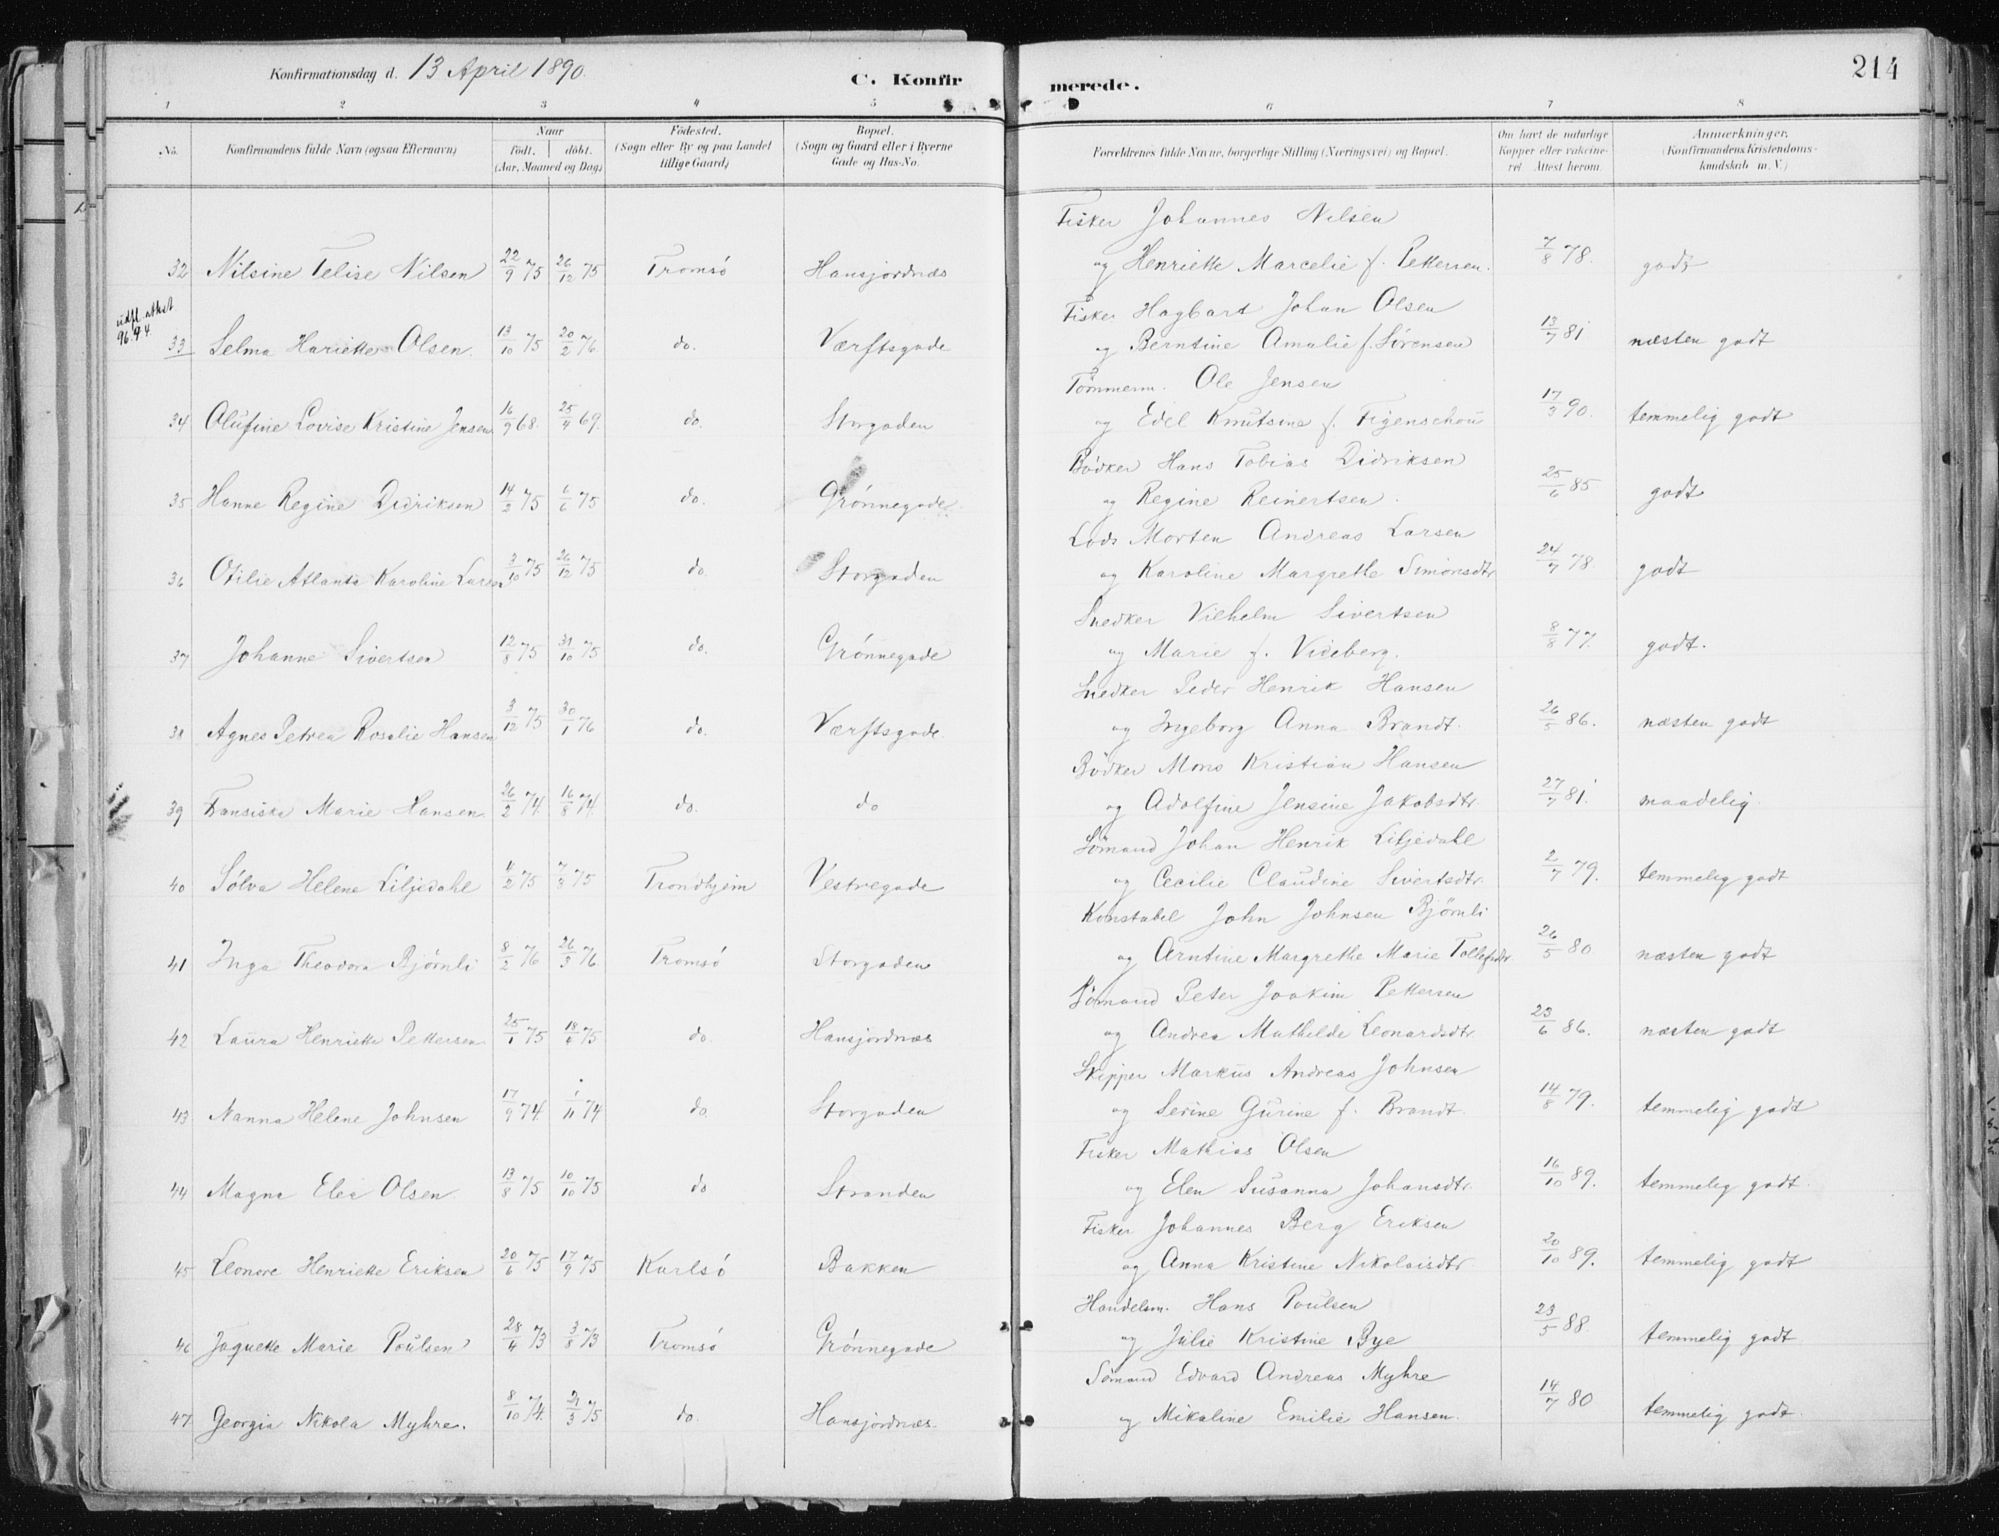 Konfirmationsdag d. 13 April 1890.
C. Konfirmerede.
214
1 2 3 4 5 6 7 8
No. Konfirmandens fulde Navn (ogsaa Efternavn) Naar født. døbt. (Aar, Maaned og Dag) Fødested. (Sogn eller By og paa Landet tillige Gaard) Bopæl. (Sogn og Gaard eller i Byerne Gade og Hus-No. Forældrenes fulde Navne, borgerlige Stilling (Næringsvei) og Bopæl. Om havt de naturlige Kopper eller vaccineret. Attest herom. Anmærkninger. (Konfirmandens Kristendomskundskab m. V.)
Fisker Johannes Nilsen
32 Nilsine Telise Nilsen 22/9 75 26/12 75 Tromsö Hansjordnæs og Henriette Marcelie f. Pettersen. 7/8 78. godt
udfl. attest 96.94.
Fisker Hagbart Johan Olsen
33 Selma Hariette Olsen. 13/10 75 20/2 76. do. Værftsgade og Berntine Amalie f. Sörensen 13/7 81 næsten godt
Tömmerm. Ole Jensen
34 Olufine Lovise Kristine Jensen 16/9 68. 25/4 69. do. Storgaden og Edel Knutsine f. Figenschou 17/3 90. temmelig godt
Bödker Hans Tobias Didriksen
35 Hanne Regine Didriksen 14/2 75 6/6 75 do. Grönnegade og Regine Reinertsen. 25/6 85 godt
Lods Morten Andreas Larsen
36 Otilie Atlanta Karoline Larsen 3/10 75 26/12 75 do. Storgaden og Karoline Margrethe Simonsdtr 24/7 78. godt
Snedker Vilhelm Sivertsen
37 Johanne Sivertsen 12/8 75 31/10 75 do. Grönnegade og Marie f. Videberg. 8/8 77. godt.
Snedker Peder Henrik Hansen
38 Agnes Petrea Rosalie Hansen 3/12 75 30/1 76 do. Værftsgade. og Ingeborg Anna Brandt. 26/5 86. næsten godt
Bödker Mons Kristian Hansen
39 Fransiska Marie Hansen. 26/2 74. 16/8 74. do. do og Adolfine Jensine Jakobsdtr. 27/7 81. maadelig.
Sömand Johan Henrik Liljedahl
40 Sölva Helene Liljedahl 4/2 75 7/3 75 Trondhjem Vestregade og Cecilie Claudine Sivertsdtr. 2/7 79. temmelig godt
Konstabel John Johnsen Björnli
41 Inga Theodora Björnli 8/2 76 26/3 76. Tromsö Storgaden og Arntine Margrethe Marie Tollefsdtr. 26/5 80 næsten godt
Sömand Peter Joakim Pettersen
42 Laura Henriette Pettersen 25/1 75 18/4 75 do. Hansjordnæs og Andrea Mathilde Leonardsdtr 23/6 86. næsten godt
Skipper Markus Andreas Johnsen
43 Nanna Helene Johnsen 17/9 74. 1/11 74 do. Storgaden og Serine Gurine f. Brandt. 14/8 79. temmelig godt
Fisker Mathias Olsen
44 Magna Elea Olsen 13/8 75 10/10 75 do Stranden og Elen Susanna Johansdtr. 16/10 89. temmelig godt.
Fisker Johannes Berg Eriksen
45 Leonore Henriette Eriksen 20/6 75 17/9 75 Karlsö Bakken og Anna Kristine Nikolaisdtr 20/10 89. temmelig godt
Handelsm. Hans Poulsen
46 Jaquette Marie Poulsen 28/4 73 3/8 73 Tromsö Grönnegade og Julie Kristine Bye 23/5 88. temmelig godt
Sömand Edvard Andreas Myhre
47 Georgia Nikola Myhre. 8/10 74. 21/3 75 do. Hansjordnæs. og Mikaline Emilie Hansen. 14/7 80 temmelig godt.